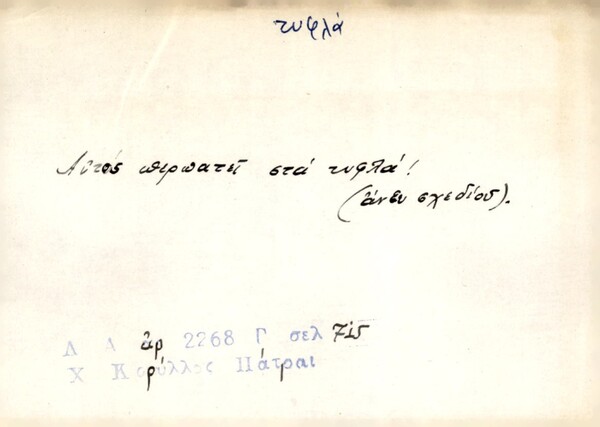 τυφλά
Αὐτός περπατεῖ στά τυφλά!
(ἄνευ σχεδίου).
Λ Α ἀρ 2268 Γ σελ 715
Χ Κορύλλος Πάτραι